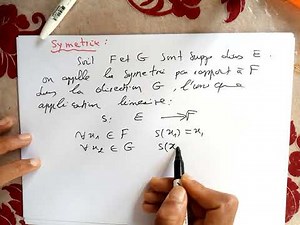 Symetrie:
Soit F et G sont supp dans E.
on appelle la symetrie par rapport à F
dans la direction G, l'unique
application linéaire:
S: E → F
∀ x₁ ∈ F S(x₁) = x₁
∀ x₂ ∈ G S(x